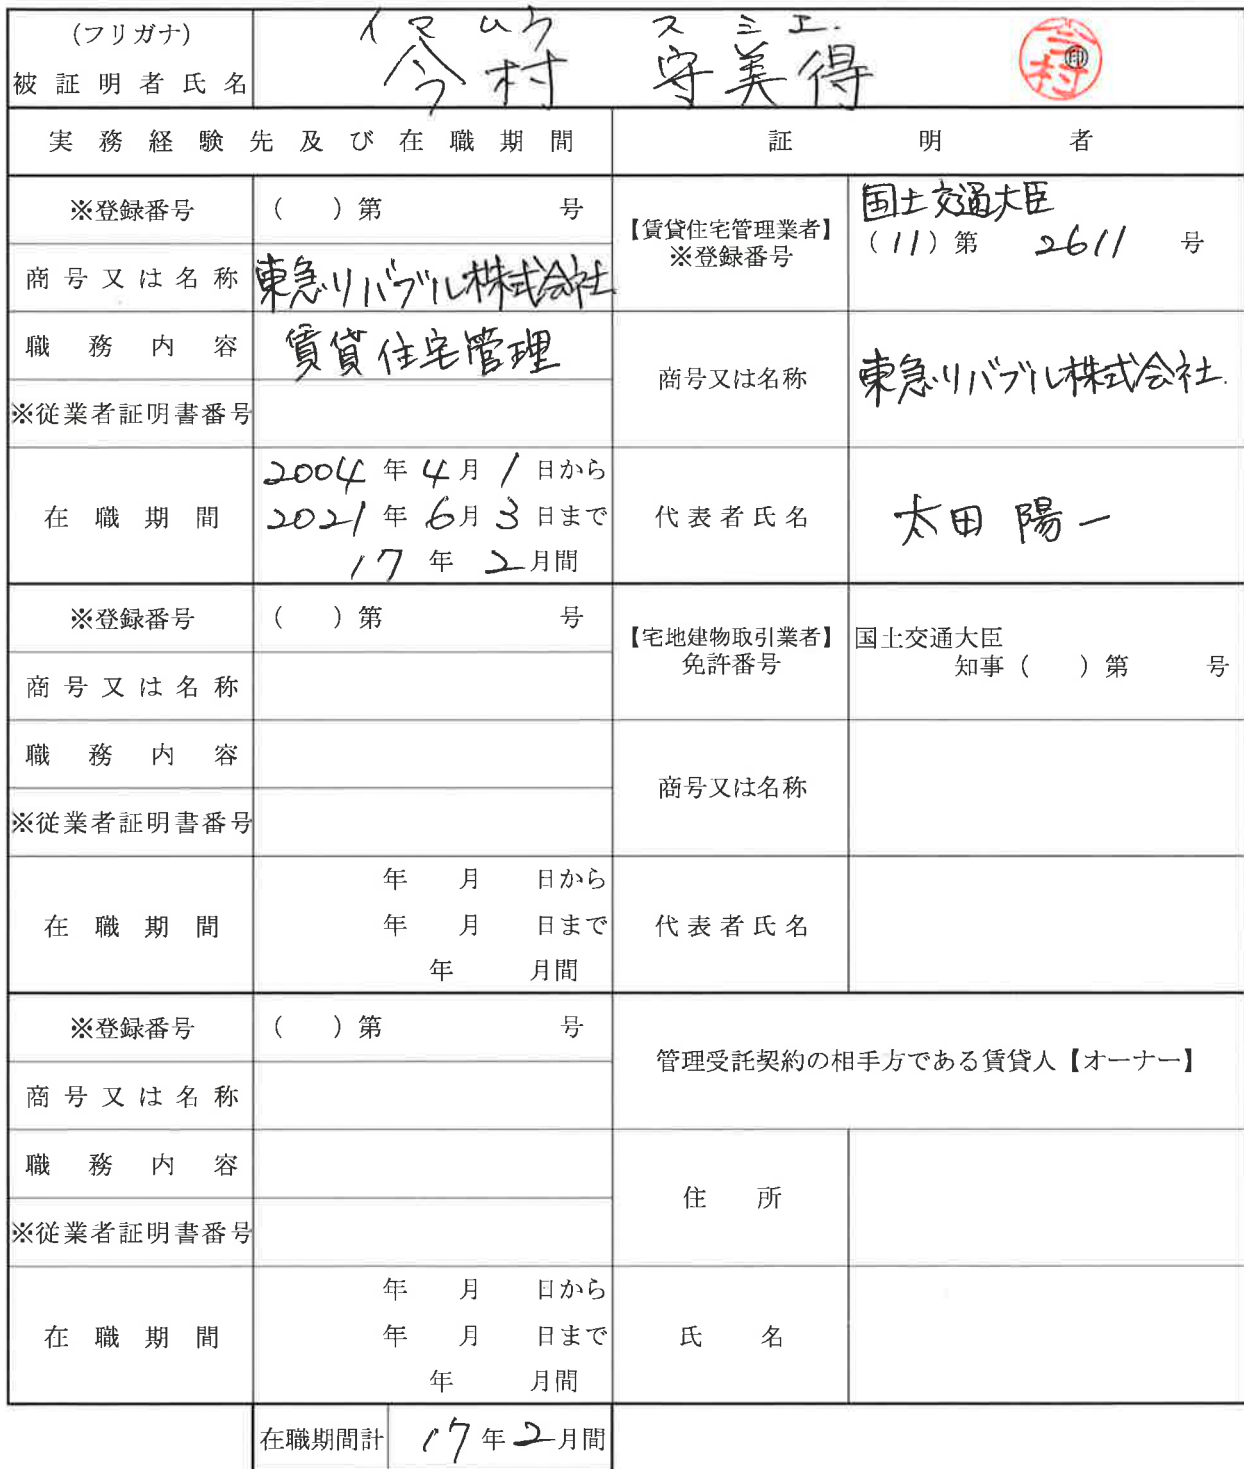 (フリガナ) イマムラ スミエ.
被証明者氏名 今村 守美得 今村 ㊞
実務経験先及び在職期間 証明者
※登録番号 ( )第 号
商号又は名称 東急リバブル株式会社
職務内容 賃貸住宅管理
※従業者証明書番号
在職期間 2004年4月1日から
2021年6月3日まで
17年2月間
【賃貸住宅管理業者】
※登録番号
国土交通大臣
(11)第 2611 号
商号又は名称 東急リバブル株式会社.
代表者氏名 太田 陽一
※登録番号 ( )第 号
商号又は名称
職務内容
※従業者証明書番号
在職期間 年 月 日から
年 月 日まで
年 月間
【宅地建物取引業者】
免許番号
国土交通大臣
知事( )第 号
商号又は名称
代表者氏名
※登録番号 ( )第 号
商号又は名称
職務内容
※従業者証明書番号
在職期間 年 月 日から
年 月 日まで
年 月間
管理受託契約の相手方である賃貸人【オーナー】
住所
氏名
在職期間計 17年2月間